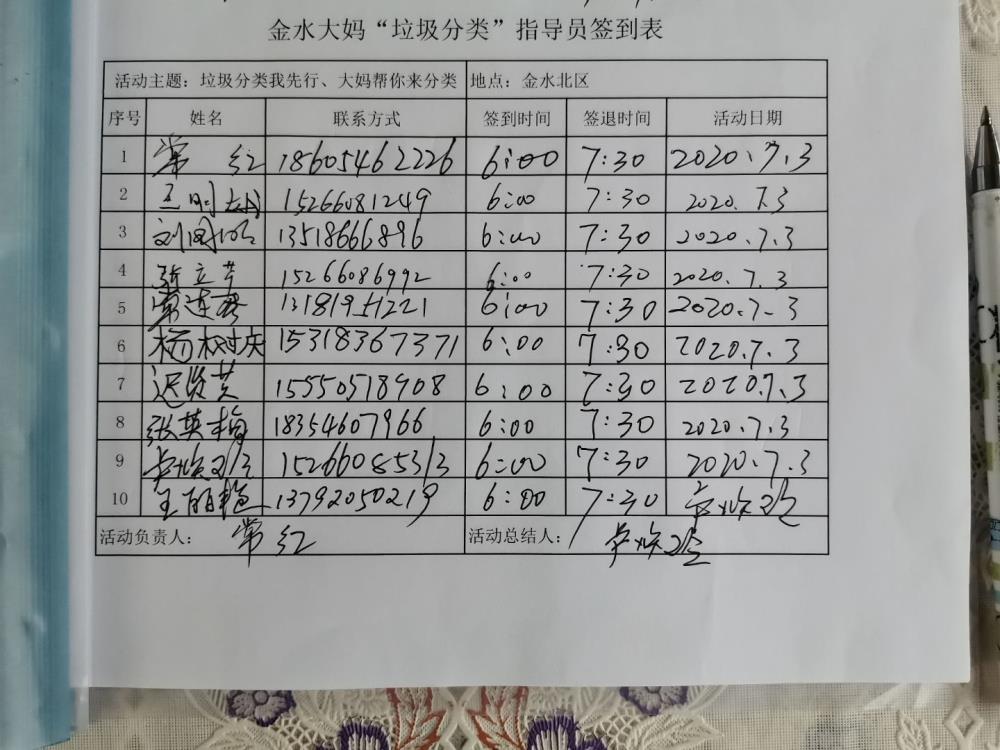 金水大妈“垃圾分类”指导员签到表
活动主题：垃圾分类我先行、大妈帮你来分类 地点：金水北区
序号 姓名 联系方式 签到时间 签退时间 活动日期
1 常红 18605462226 6:00 7:30 2020.7.3
2 王明 15266081249 6:00 7:30 2020.7.3
3 刘国 13518666896 6:00 7:30 2020.7.3
4 立芹 15266086992 6:00 7:30 2020.7.3
5 常连 13181951221 6:00 7:30 2020.7.3
6 杨树庆 15318367371 6:00 7:30 2020.7.3
7 迟 英 15550518908 6:00 7:30 2020.7.3
8 张英梅 18354607966 6:00 7:30 2020.7.3
9 15266085313 6:00 7:30 2020.7.3
10 王丽艳 13792050219 6:00 7:30
活动负责人：常红 活动总结人：